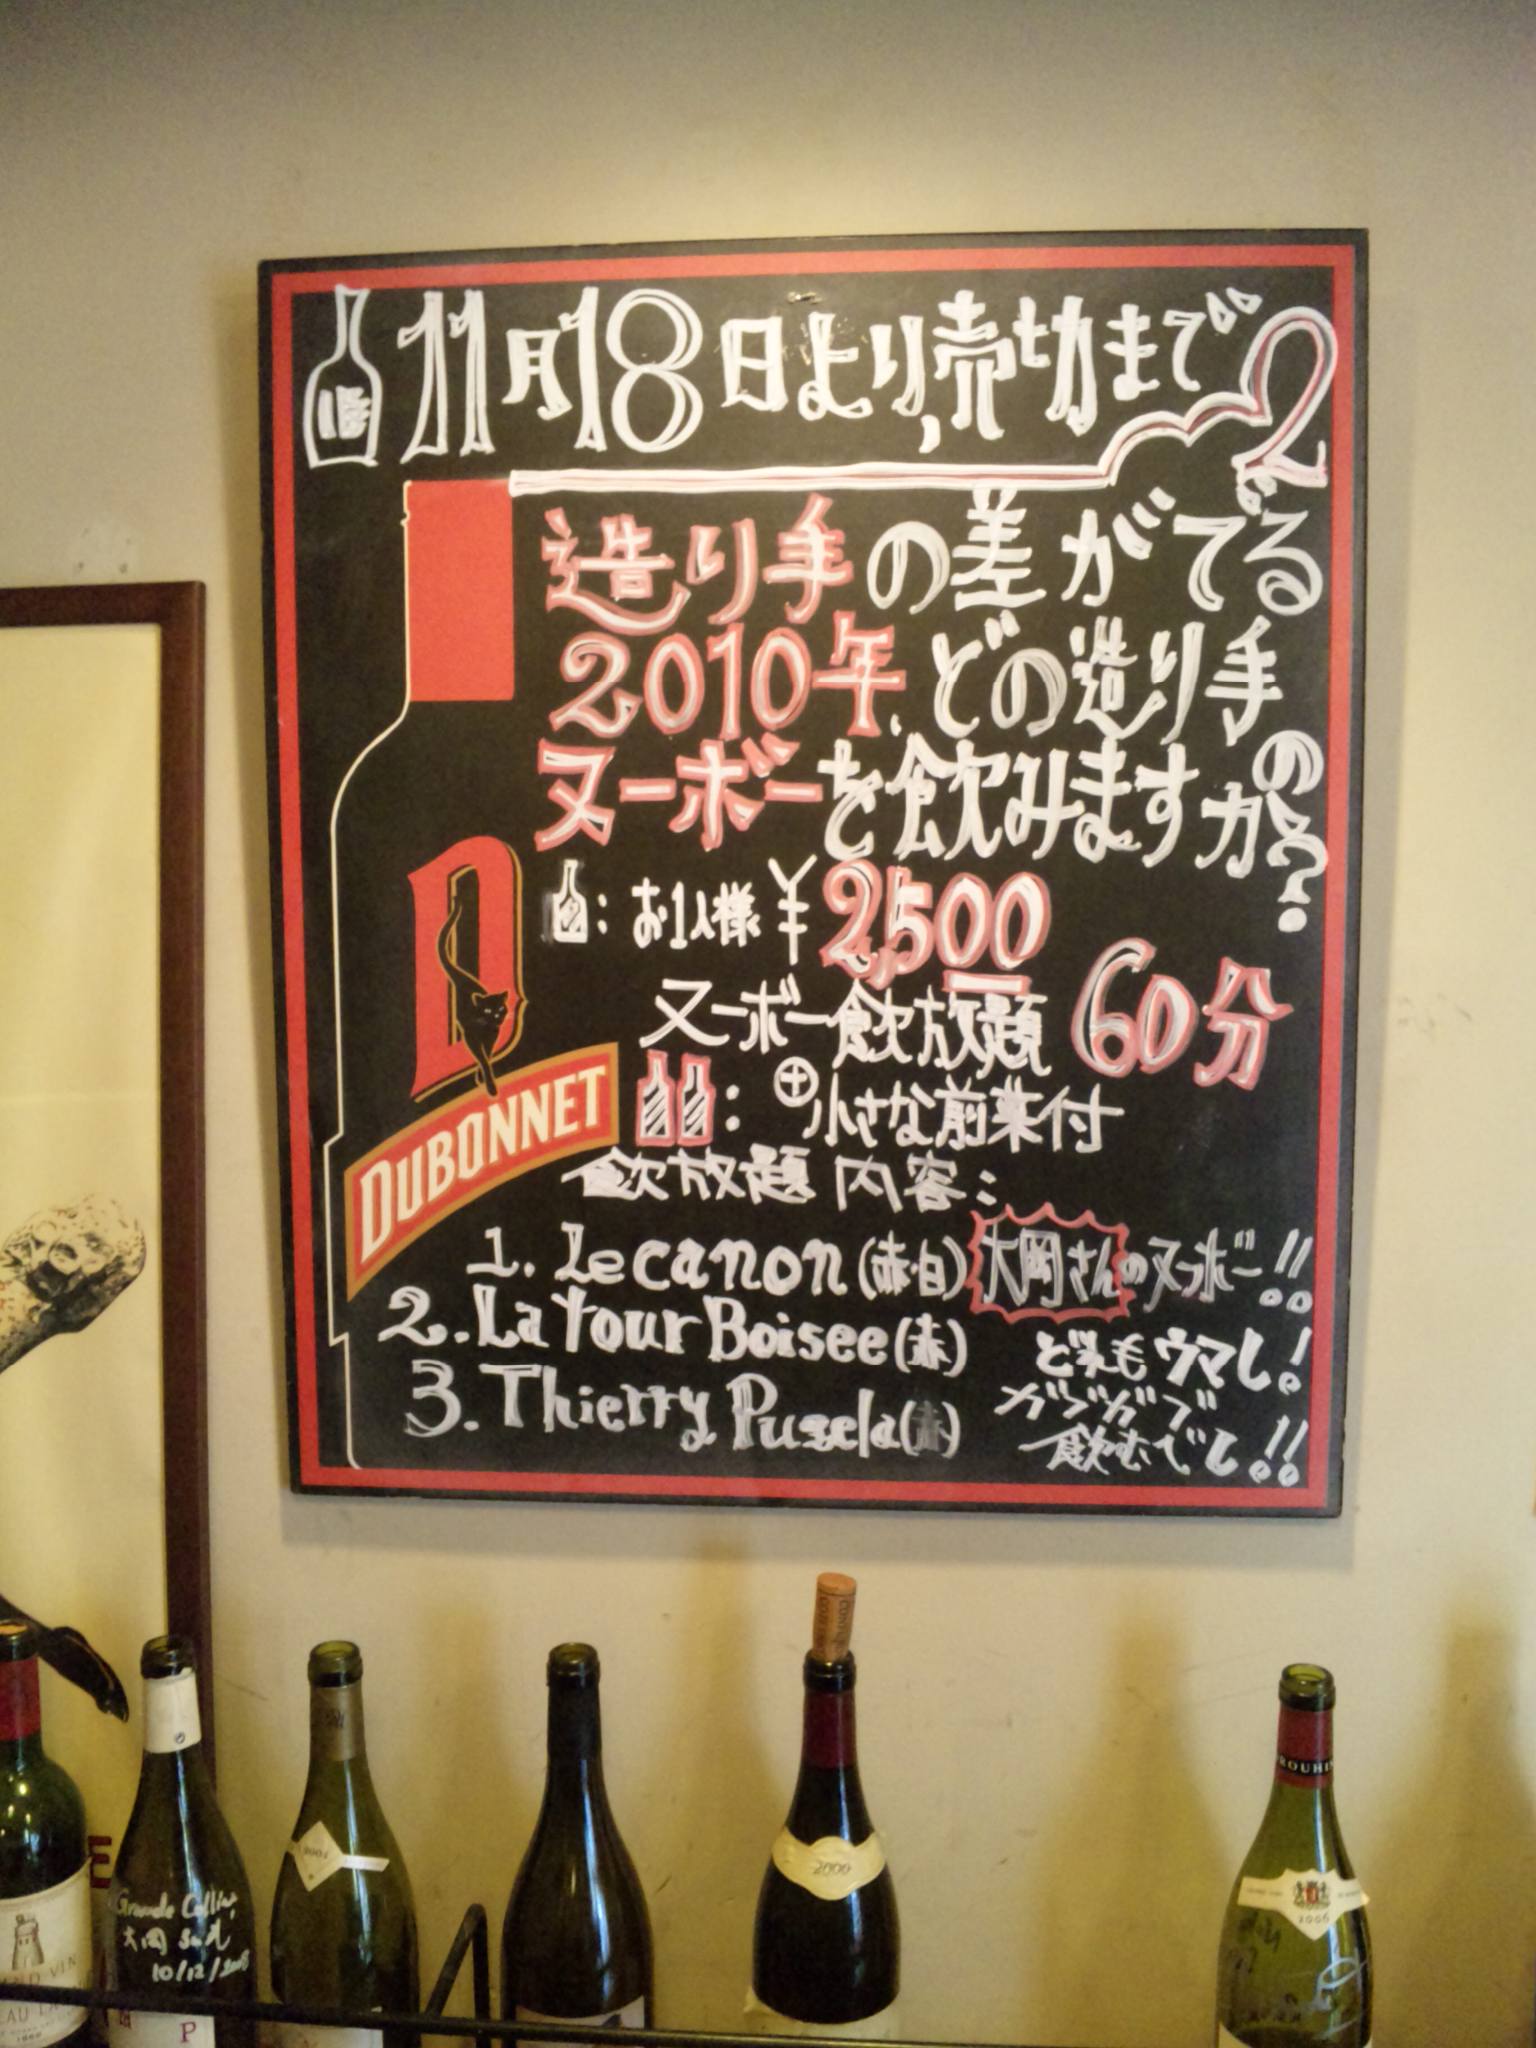 11月18日より,売切まで
造り手の差がでる
2010年、どの造り手の
ヌーボーを飲みますか?
: お1人様 ¥2,500
ヌーボー飲放題 60分
: ⊕小さな前菜付
DUBONNET
飲放題 内容:
1. Le canon (赤・白) 大岡さんのヌーボー!!
2. La Tour Boisee (赤)
どれもウマし!
3. Thierry Puzela (赤)
ガブガブ
飲むべし!!
2000
ROUHIN
2006
Grande Colline
大岡
10/12/2008
P
E